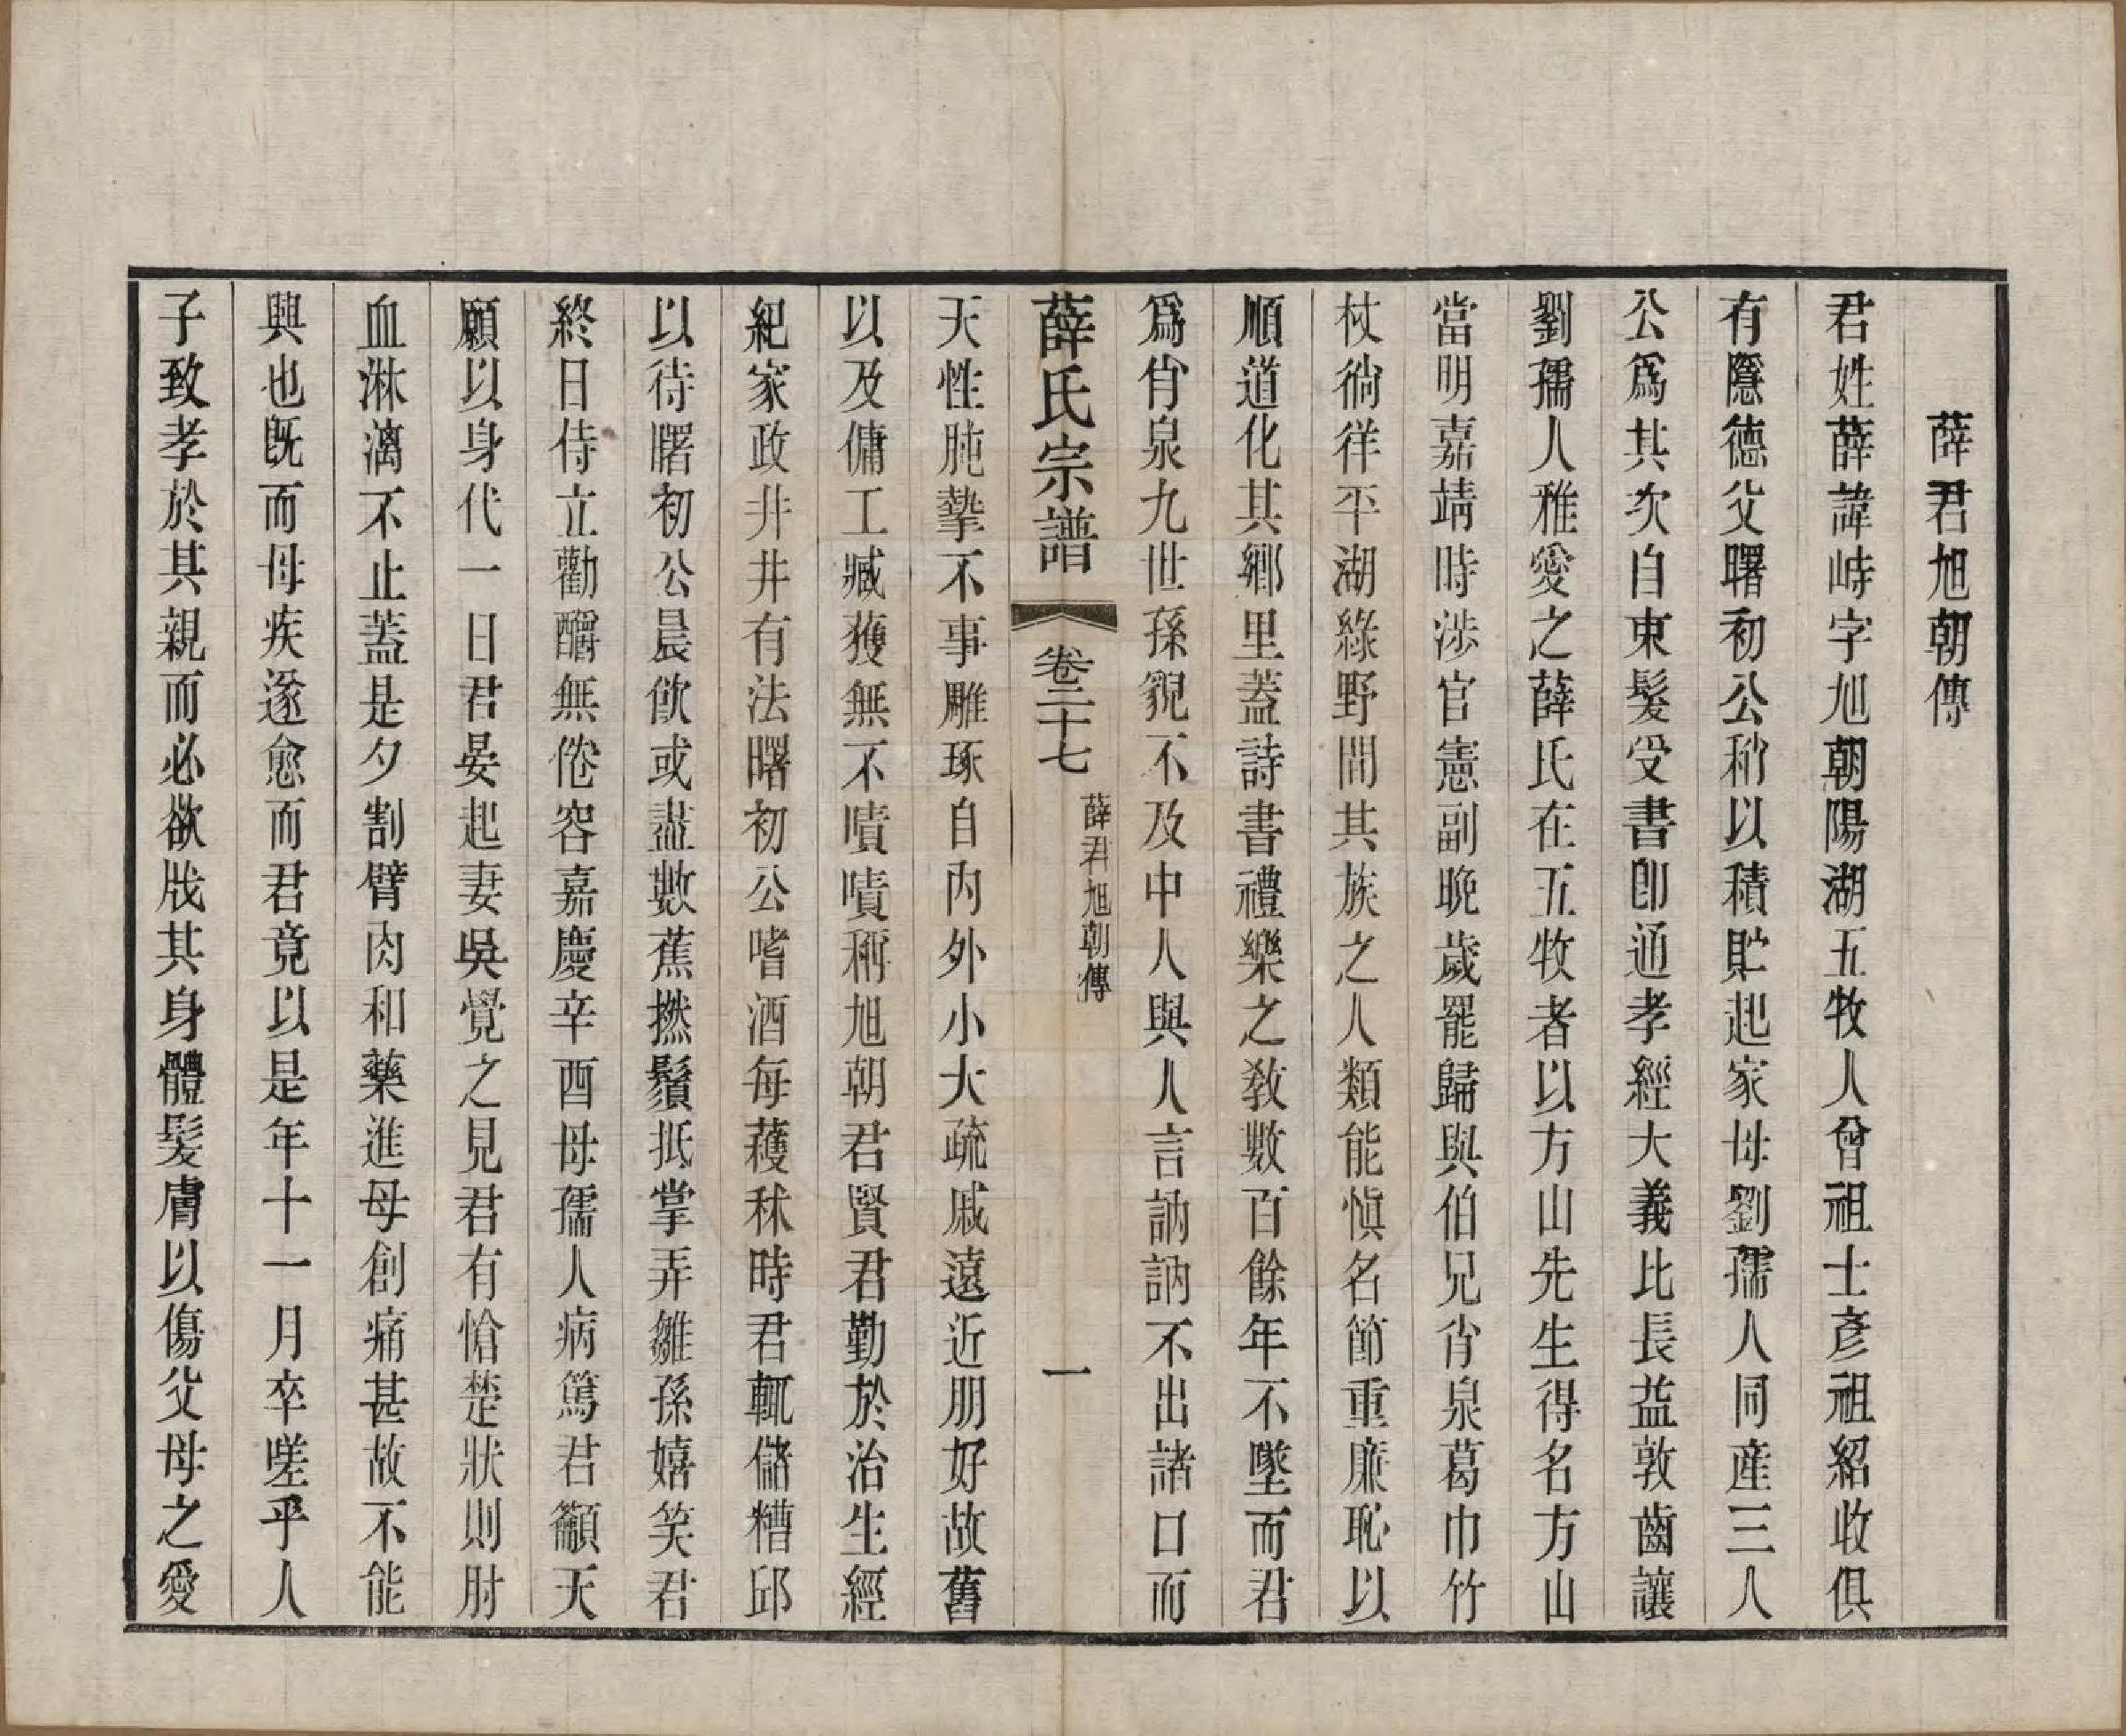 薛君旭朝傳
君姓薛諱峙字旭朝陽湖五牧人曾祖士彥祖紹收俱
有隱德父曙初公稍以積貯起家母劉孺人同産三人
公爲其次自束髮受書卽通孝經大義比長益敦齒讓
劉孺人雅愛之薛氏在五牧者以方山先生得名方山
當明嘉靖時涉官憲副晚歲罷歸與伯兄肖泉葛巾竹
杖徜徉平湖綠野間其族之人類能愼名節重廉恥以
順道化其鄉里蓋詩書禮樂之敎數百餘年不墜而君
爲肖泉九世孫貌不及中人與人言訥訥不出諸口而
薛氏宗譜 卷二十七 薛君旭朝傳 一
天性肫摯不事雕琢自內外小大疏戚遠近朋好故舊
以及傭工臧獲無不嘖嘖稱旭朝君賢君勤於治生經
紀家政井井有法曙初公嗜酒每穫秫時君輒儲糟邱
以待曙初公晨飮或盡數蕉撚鬚抵掌弄雛孫嬉笑君
終日侍立勸釂無倦容嘉慶辛酉母孺人病篤君籲天
願以身代一日君晏起妻吳覺之見君有愴楚狀則肘
血淋漓不止蓋是夕割臂肉和藥進母創痛甚故不能
興也旣而母疾遂愈而君竟以是年十一月卒嗟乎人
子致孝於其親而必欲戕其身體髮膚以傷父母之愛